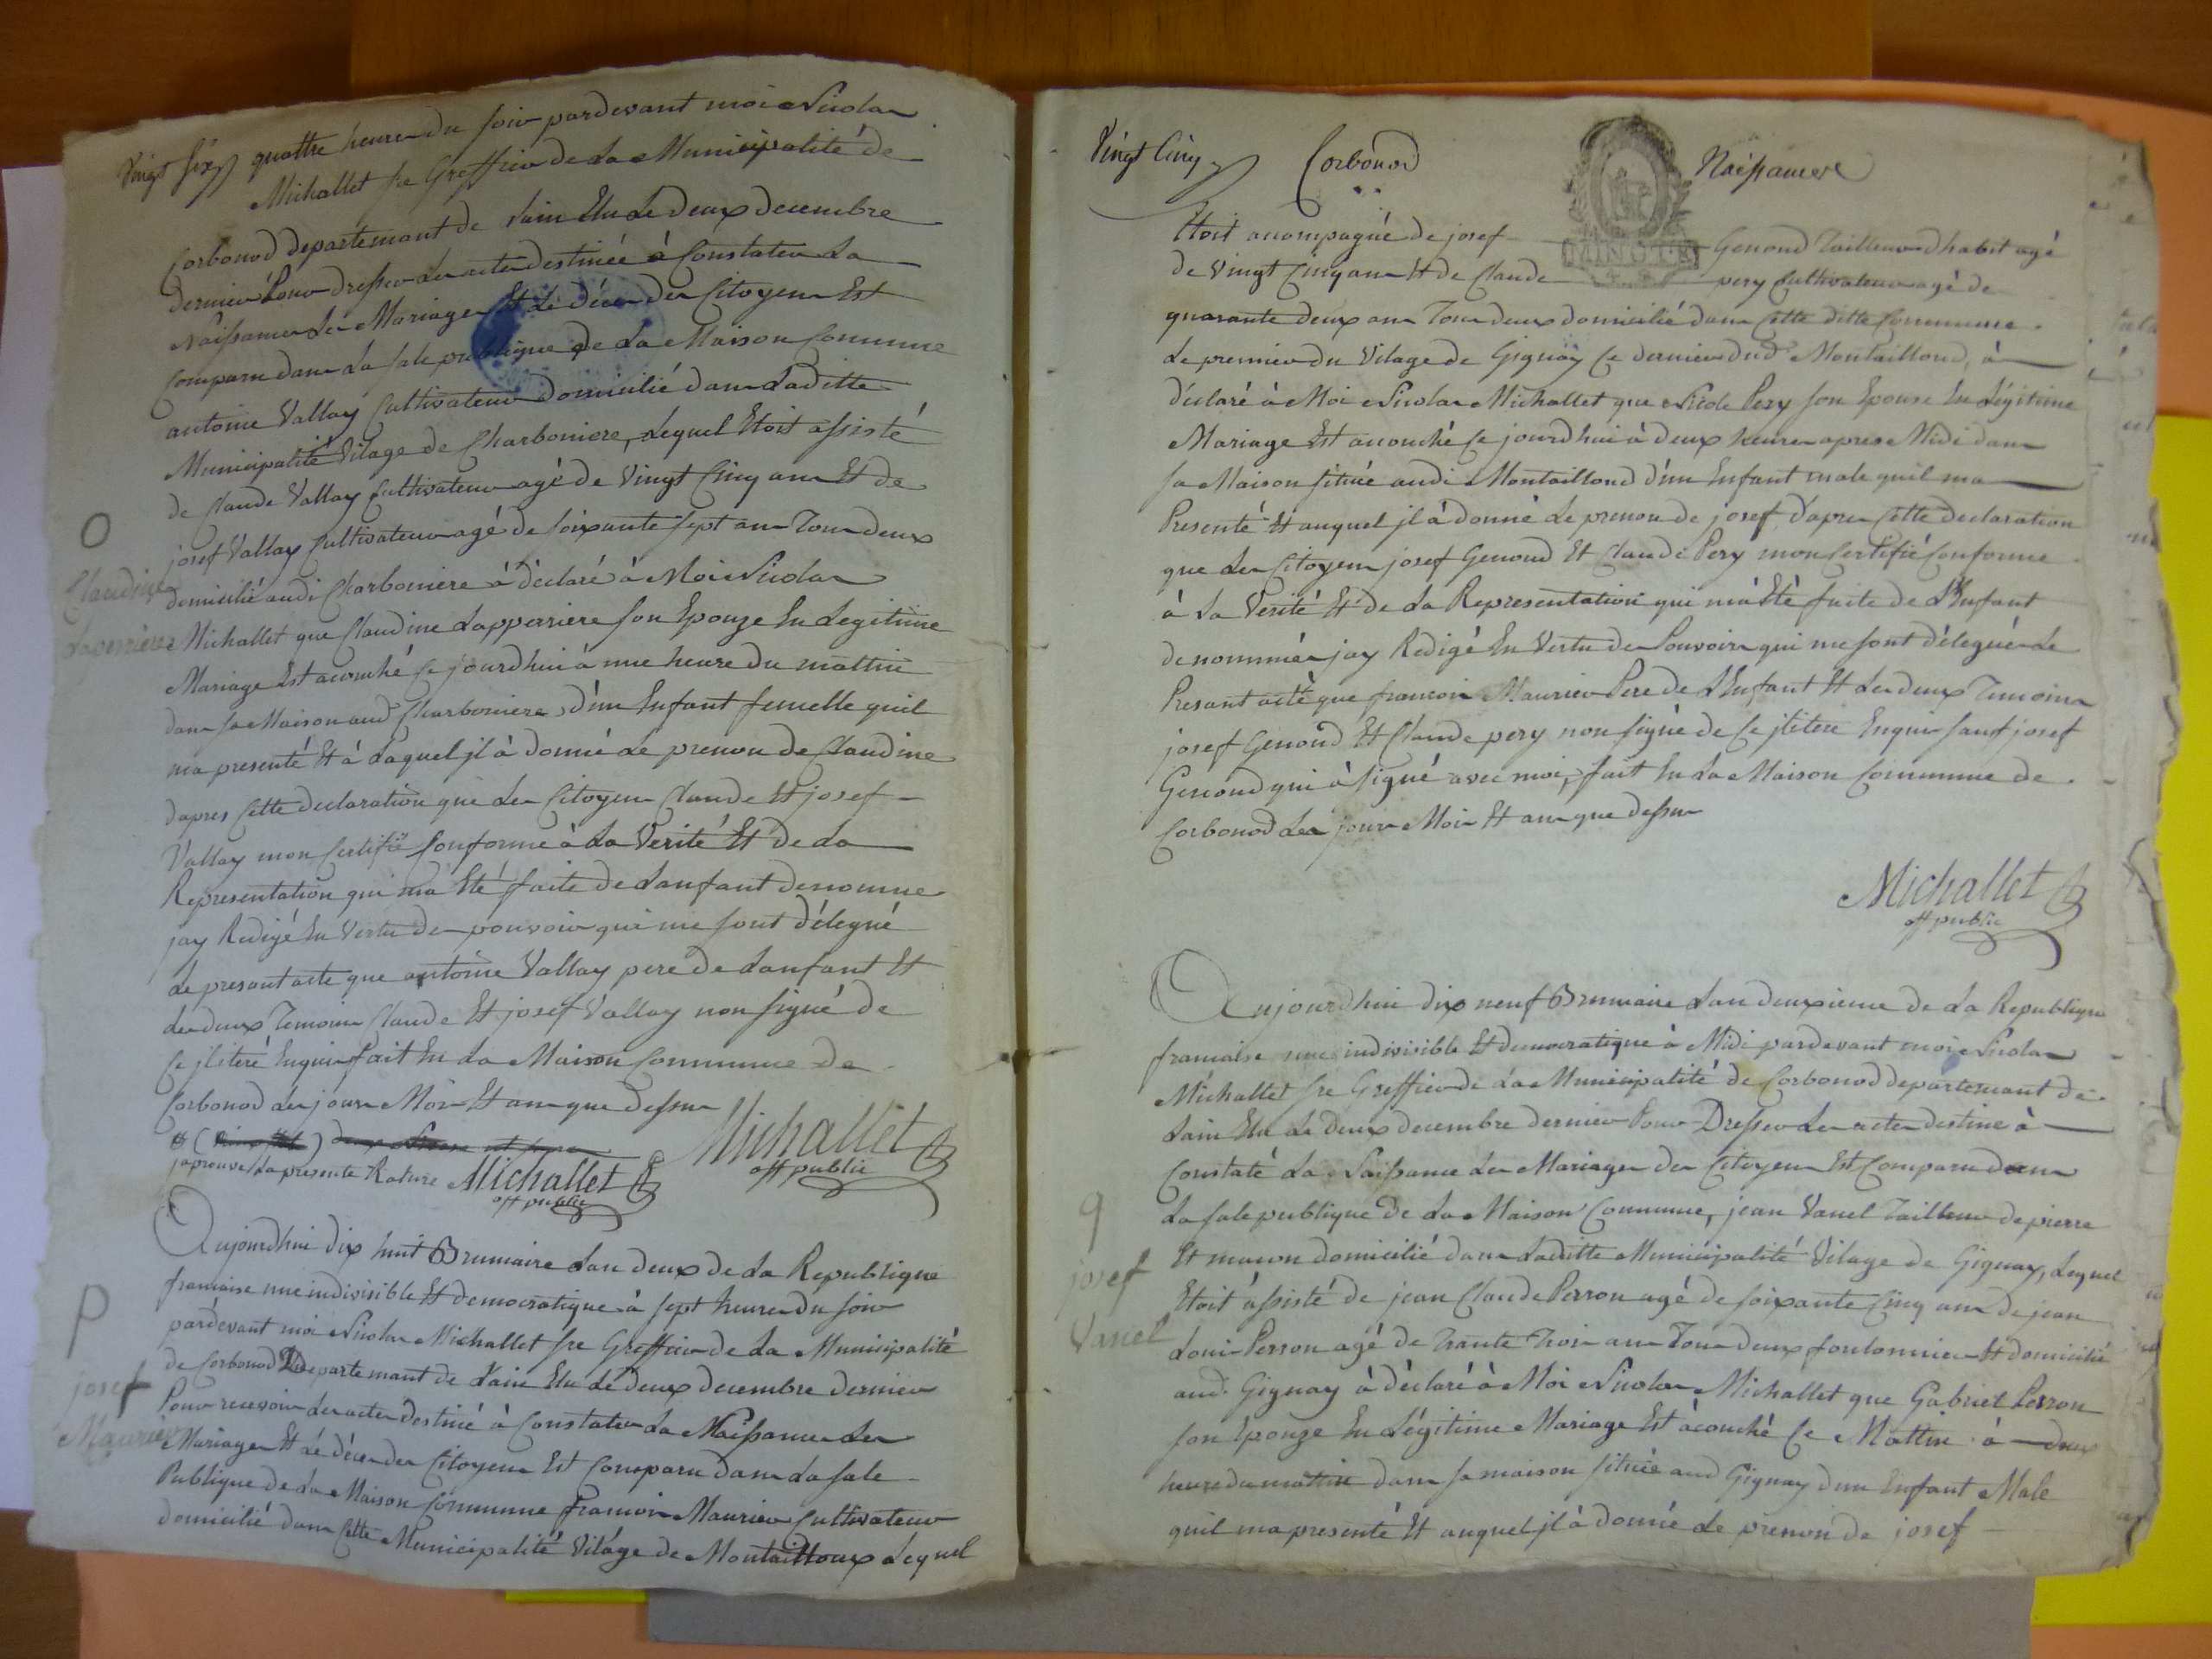 Vingt six quattre heures du soir pardevant moi Nicolas
Michallet sre Greffier de La Municipalité de
Corbonod departemant de Lain Elu Le deux decembre
dernier Pour dresser Les actes destinée à Constater La
Naissance Les Mariages Et Le décer des Citoyens Est
Comparu dans La sale publique de La Maison Commune
antoine Vallay Cultivateur domicilié dans Laditte
Municipalité Vilage de Charboniere, Lequel Etoit assisté
de Claude Vallay Cultivateur agé de Vingt Cinq ans Et de
josef Vallay Cultivateur agé de soixante sept ans Tous deux
O
domicilié audi Charboniere à déclaré à Moi Nicolas
Claudine
Michallet que Claudine Lapperriere son Epouze En Legitime
Laperriere
Mariage Est acouché se jourdhui à une heure du mattin
dans sa Maison aud Charboniere d'un Enfant femelle quil
ma presenté Et à Laquel jl à donné Le prenon de Claudine
dapres Cette declaration que Les Citoyens Claude Et josef
Vallay mon Certifié Conforme à La Verité Et de La
Representation qui ma Eté faite de Lanfant denomme
jay Redigé En Vertu des pouvoirs qui me sont délegué
Le presant acte que antoine Vallay pere de Lanfant Et
Les deux Temoins Claude Et josef Vallay non signé de
Ce jliteré Enquis fait En La Maison Commune de
Corbonod Les jours Mois Et ans que dessus
Michallet
off public
japrouve La presente Rature Michallet
off public
Aujourdhui dix huit Brumaire Lan deux de La Republique
francaise une indivisible Et democratique à sept heures du soir
P
pardevant moi Nicolas Michallet sre Greffier de La Municipalité
de Corbonod Departemant de Lain Elu Le deux decembre dernier
josef
Pour recevoir Les actes destiné à Constater La Naissance Les
Maurier
Mariages Et Le décer des Citoyens Est Comparu dans La sale
Publique de La Maison Commune francois Maurier Cultivateur
domicilié dans Cette Municipalité Vilage de Montailloux Lequel
Vingt Cinq Corbonod Naissances
Etoit acompagné de josef Genoud Tailleur dhabit agé
de Vingt Cinq ans Et de Claude pery Cultivateur agé de
quarante deux ans Tous deux domicilié dans Cette ditte Commune
Le premier du Vilage de Gignay Ce dernier dud Montailloud, à
déclaré à Moi Nicolas Michallet que Nicole Pery son Epouse En Légitime
Mariage Est acouché Ce jourdhui à deux heures apres Midi dans
sa Maison située audi Montailloud d'un Enfant male quil ma
Presenté Et auquel jl à donné Le prenon de josef dapres Cette declaration
que Les Citoyens josef Genoud Et Claude Pery mon Certifié Conforme
à La Verité Et de La Representation qui mà Eté faite de L'Enfant
denommés jay Redigé En Vertu des Pouvoirs qui me sont délegués Le
Presant acte que francois Maurier Pere de L'Enfant Et Les deux Temoins
josef Genoud Et Claude pery non signé de Ce jliteré Enquis sauf josef
Genoud qui à signé avec moi, fait En La Maison Commune de
Corbonod Les jours Mois Et ans que dessus
Michallet
off public
Aujourdhui dix neuf Brumaire Lan deuxieme de La Republique
francaise une indivisible Et democratique à Midi pardevant moi Nicolas
Michallet sre Greffier de La Municipalité de Corbonod departemant de
Lain Elu Le deux decembre dernier Pour Dresser Les actes destiné à
Constaté La Naissance Les Mariages des Citoyens Est Comparu dans
La sale publique de La Maison Commune, jean Vanel Tailleur de pierre
q
Et macon domicilié dans Laditte Municipalité Vilage de Gignay, Lequel
josef
Etoit assisté de jean Claude Perron agé de soixante Cinq ans de jean
Vanel
Loui Perron agé de Trante Trois ans Tous deux fontonnier Et domicilié
aud. Gignay à déclaré à Moi Nicolas Michallet que Gabriel Perron
son Epouze En Légitime Mariage Est àcouché Ce Mattin à deux
heures du mattin dans sa maison située aud Gignay dun Enfant Male
quil ma presenté Et auquel jl à donné Le prenon de josef